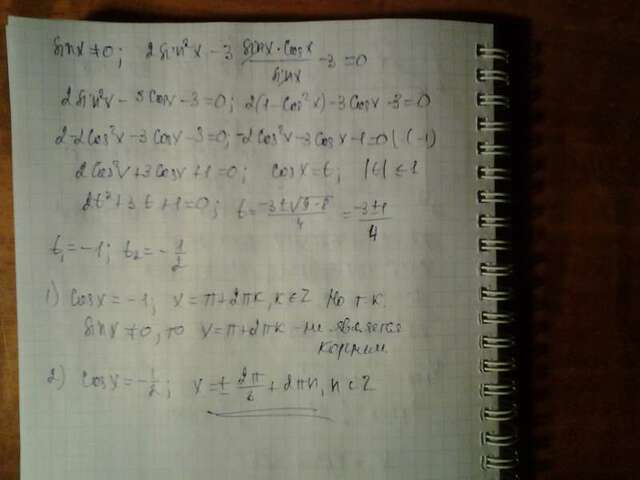 sinx ≠ 0; 2sin²x - 3 sinx·cosx/sinx - 3 = 0
2sin²x - 3cosx - 3 = 0; 2(1-cos²x) - 3cosx - 3 = 0
2-2cos²x - 3cosx - 3 = 0; -2cos²x - 3cosx - 1 = 0 | (-1)
2cos²x + 3cosx + 1 = 0; cosx = t; |t| ≤ 1
2t² + 3t + 1 = 0; t = -3±√9-8/4 = -3±1/4
t₁ = -1; t₂ = -1/2
1) cosx = -1; x = π + 2πk, k ∈ Z Но т.к.
sinx ≠ 0, то x = π + 2πk - не является
корнем
2) cosx = -1/2; x = ± 2π/3 + 2πn, n ∈ Z